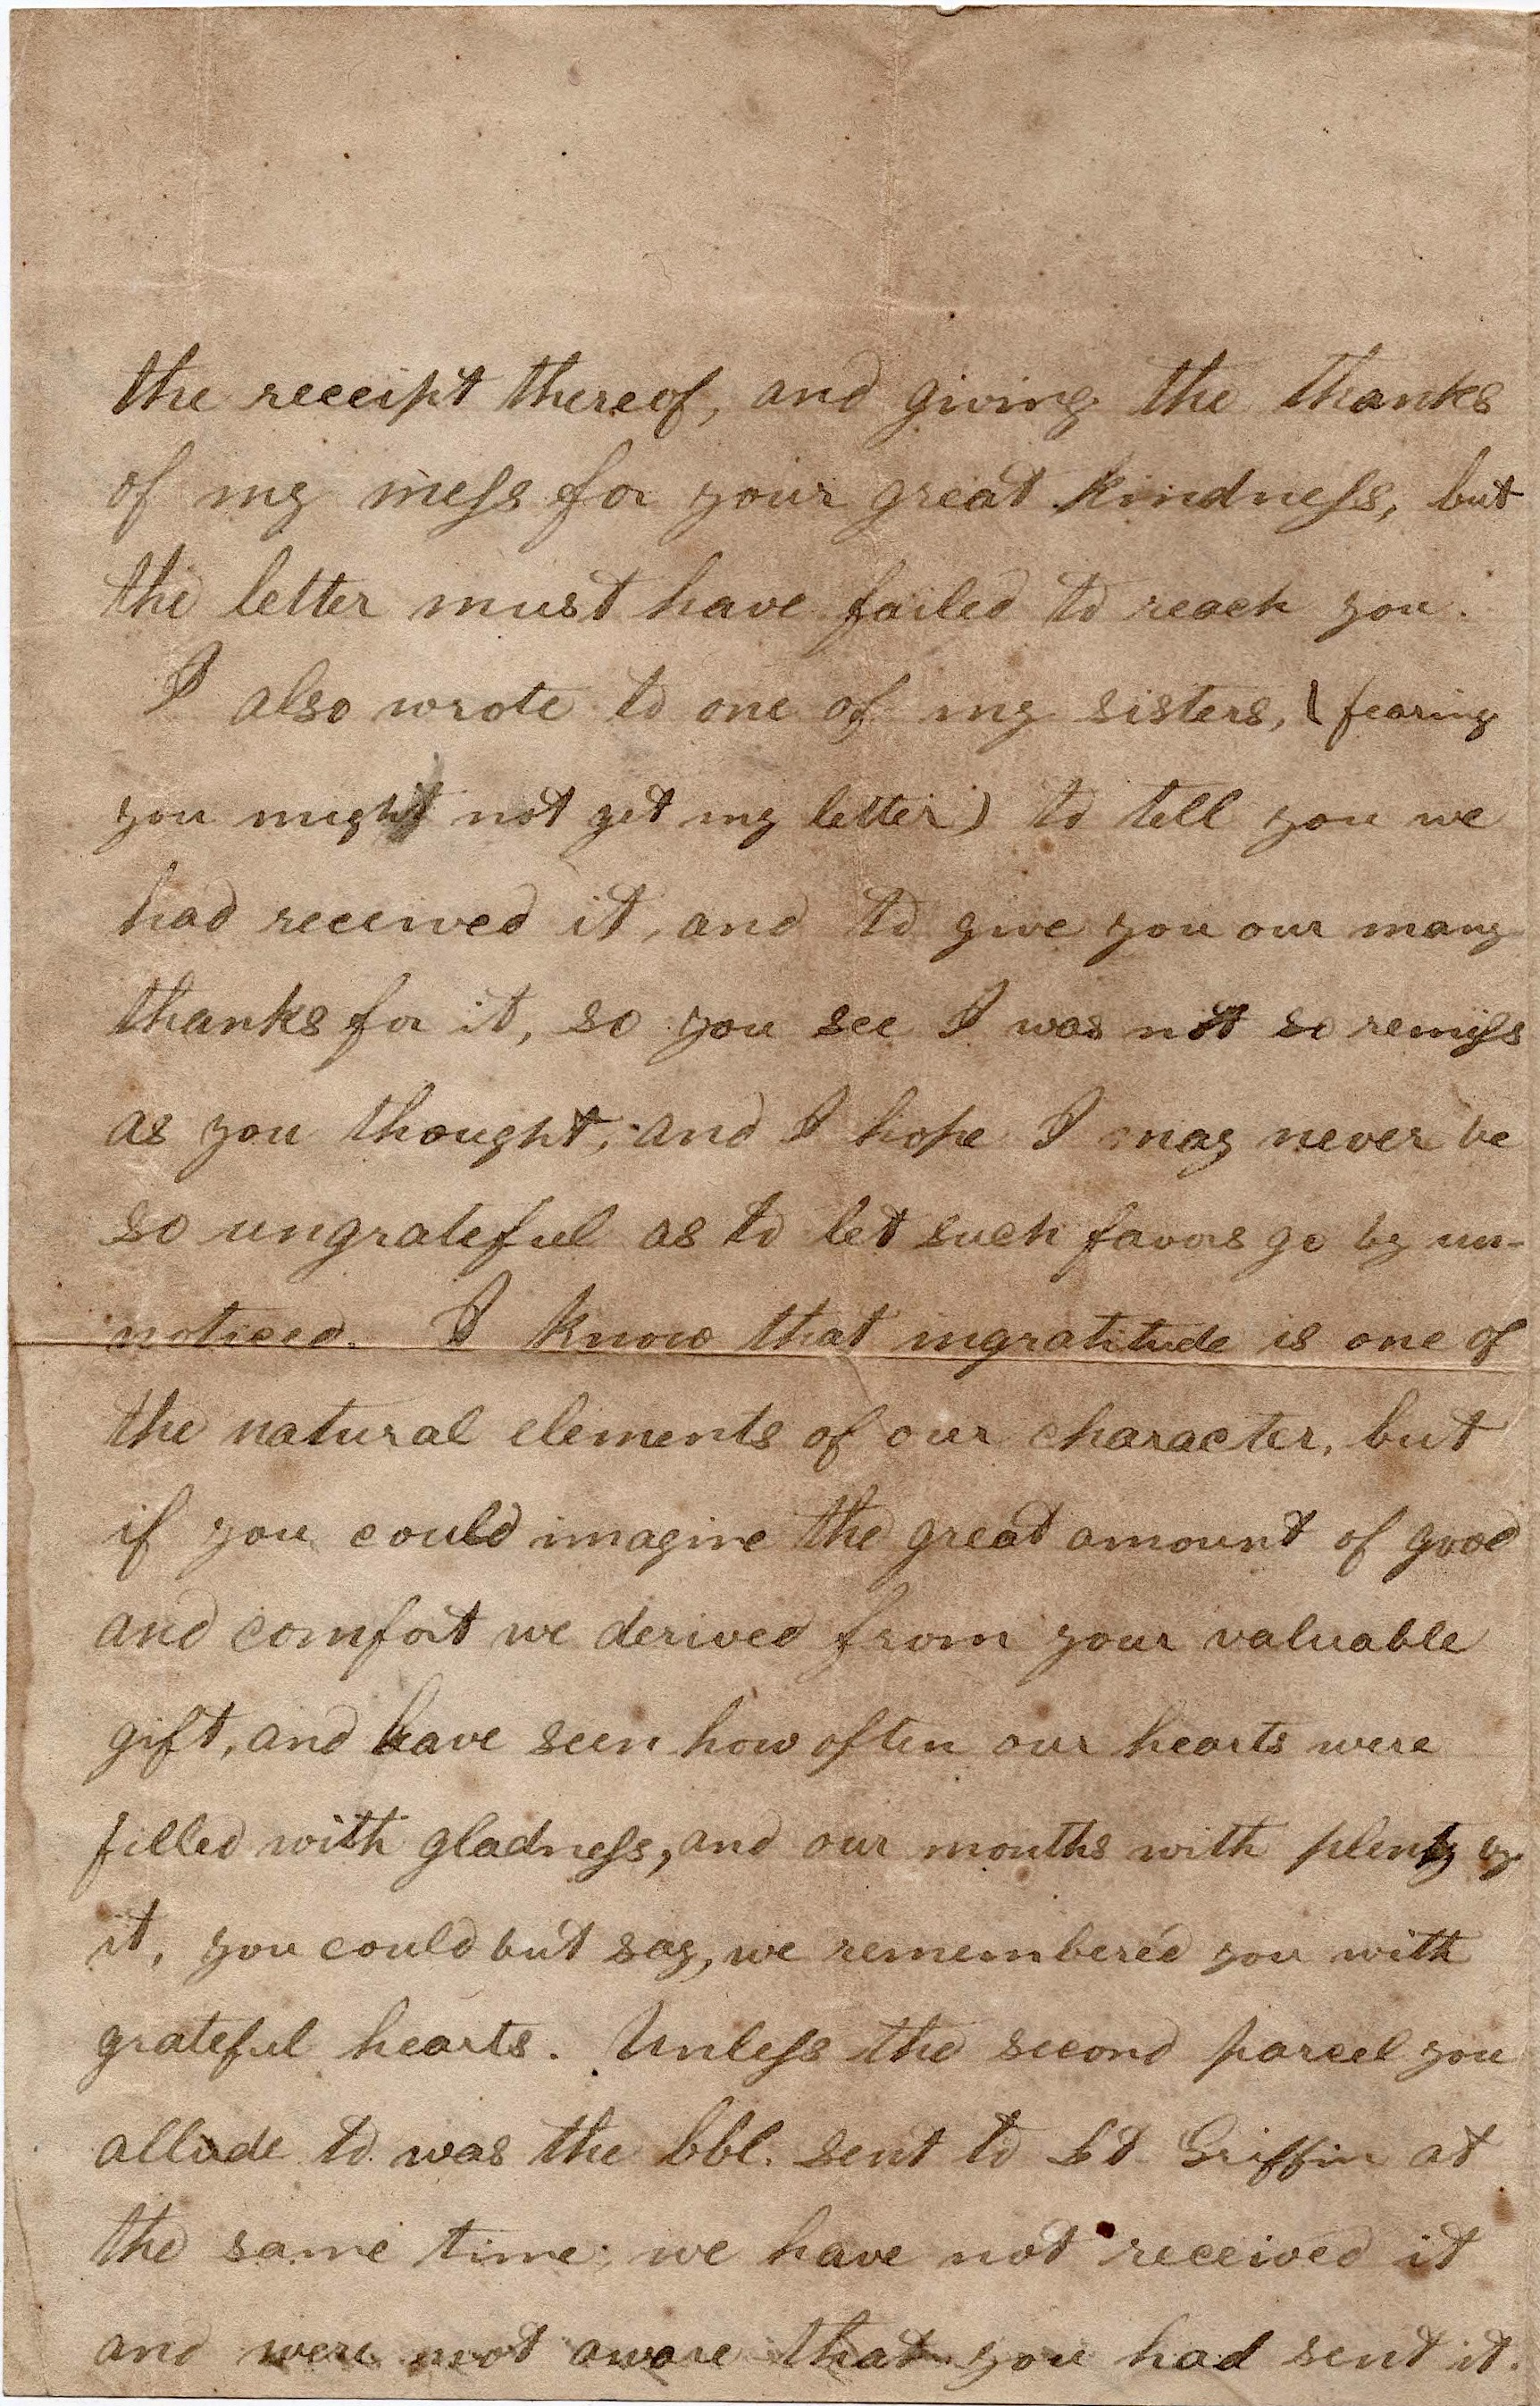 the receipt thereof, and giving the thanks
of my mess for your great kindness, but
the letter must have failed to reach you.
I also wrote to one of my sisters, (fearing
you might not get my letter) to tell you we
had received it, and to give you our many
thanks for it, so you see I was not so remiss
as you thought; and I hope I may never be
so ungrateful as to let such favors go by un-
noticed. I know that ingratitude is one of
the natural elements of our character, but
if you could imagine the great amount of good
and comfort we derived from your valuable
gift, and have seen how often our hearts were
filled with gladness, and our mouths with plenty by
it, you could but say, we remembered you with
grateful hearts. Unless the second parcel you
allude to was the bbl. sent to Lt. Griffin at
the same time; we have not received it
and were not aware that you had sent it.